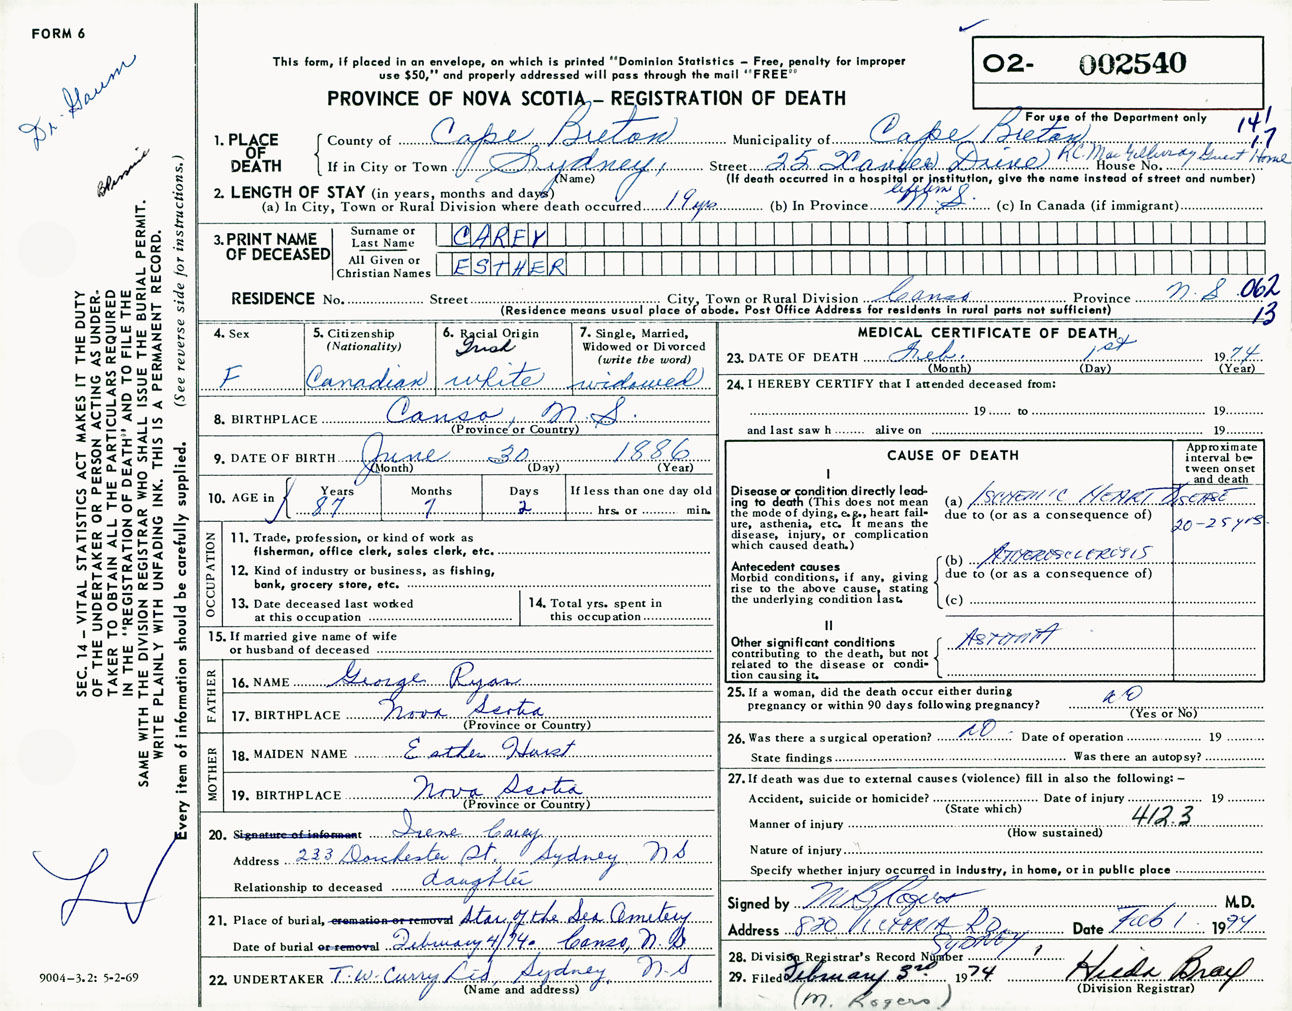 FORM 6
Dr. Gaum
This form, if placed in an envelope, on which is printed "Dominion Statistics – Free, penalty for improper
use $50," and properly addressed will pass through the mail "FREE"
PROVINCE OF NOVA SCOTIA – REGISTRATION OF DEATH
02- 002540
For use of the Department only
141
17
1. PLACE OF DEATH
County of Cape Breton Municipality of Cape Breton
If in City or Town Sydney, Street 25 Xavier Drive House No. R.C. MacGillivray Guest Home
(Name) (If death occurred in a hospital or institution, give the name instead of street and number)
2. LENGTH OF STAY (in years, months and days)
(a) In City, Town or Rural Division where death occurred 19 yrs (b) In Province lifetime N.S. (c) In Canada (if immigrant)
3. PRINT NAME OF DECEASED
Surname or Last Name CAREY
All Given or Christian Names ESTHER
RESIDENCE No. Street City, Town or Rural Division Canso Province N.S. 062
(Residence means usual place of abode. Post Office Address for residents in rural parts not sufficient) 13
4. Sex
F
5. Citizenship
(Nationality)
Canadian
6. Racial Origin
Irish
white
7. Single, Married,
Widowed or Divorced
(write the word)
widowed
8. BIRTHPLACE Canso, N.S.
(Province or Country)
9. DATE OF BIRTH June 30 1886
(Month) (Day) (Year)
10. AGE in
Years Months Days If less than one day old
87 7 2 hrs. or min.
OCCUPATION
11. Trade, profession, or kind of work as
fisherman, office clerk, sales clerk, etc.
12. Kind of industry or business, as fishing,
bank, grocery store, etc.
13. Date deceased last worked
at this occupation
14. Total yrs. spent in
this occupation
15. If married give name of wife
or husband of deceased
FATHER
16. NAME George Ryan
17. BIRTHPLACE Nova Scotia
(Province or Country)
MOTHER
18. MAIDEN NAME Esther Hurst
19. BIRTHPLACE Nova Scotia
(Province or Country)
20. Signature of informant Irene Carey
Address 233 Dorchester St. Sydney NS
Relationship to deceased daughter
21. Place of burial, cremation or removal Star of the Sea Cemetery
Date of burial or removal February 4/74. Canso, N.S
22. UNDERTAKER T.W. Curry Ltd, Sydney, N-S
(Name and address)
MEDICAL CERTIFICATE OF DEATH
23. DATE OF DEATH Feb. 1st 1974
(Month) (Day) (Year)
24. I HEREBY CERTIFY that I attended deceased from:
19 to 19
and last saw h alive on 19
CAUSE OF DEATH
Approximate
interval be-
tween onset
and death
I
Disease or condition directly lead-
ing to death (This does not mean
the mode of dying, e.g., heart fail-
ure, asthenia, etc. It means the
disease, injury, or complication
which caused death.)
(a) ISCHEMIC HEART DISEASE
due to (or as a consequence of)
20-25 yrs.
Antecedent causes
Morbid conditions, if any, giving
rise to the above cause, stating
the underlying condition last.
(b) ATHEROSCLEROSIS
due to (or as a consequence of)
(c)
II
Other significant conditions
contributing to the death, but not
related to the disease or condi-
tion causing it.
ASTHMA
25. If a woman, did the death occur either during
pregnancy or within 90 days following pregnancy? no
(Yes or No)
26. Was there a surgical operation? no Date of operation 19
State findings Was there an autopsy?
27. If death was due to external causes (violence) fill in also the following: –
Accident, suicide or homicide? Date of injury 19
(State which)
Manner of injury 412.3
(How sustained)
Nature of injury
Specify whether injury occurred in industry, in home, or in public place
Signed by M B Rogers M.D.
Address 820 VICTORIA RD SYDNEY Date Feb 1 1974
28. Division Registrar's Record Number
29. Filed February 3rd 1974 Hilda Bray
(M. Rogers) (Division Registrar)
SEC. 14 – VITAL STATISTICS ACT MAKES IT THE DUTY
OF THE UNDERTAKER OR PERSON ACTING AS UNDER-
TAKER TO OBTAIN ALL THE PARTICULARS REQUIRED
IN THE "REGISTRATION OF DEATH" AND TO FILE THE
SAME WITH THE DIVISION REGISTRAR WHO SHALL ISSUE THE BURIAL PERMIT.
WRITE PLAINLY WITH UNFADING INK. THIS IS A PERMANENT RECORD.
Every item of information should be carefully supplied. (See reverse side for instructions.)
9004-3.2: 5-2-69